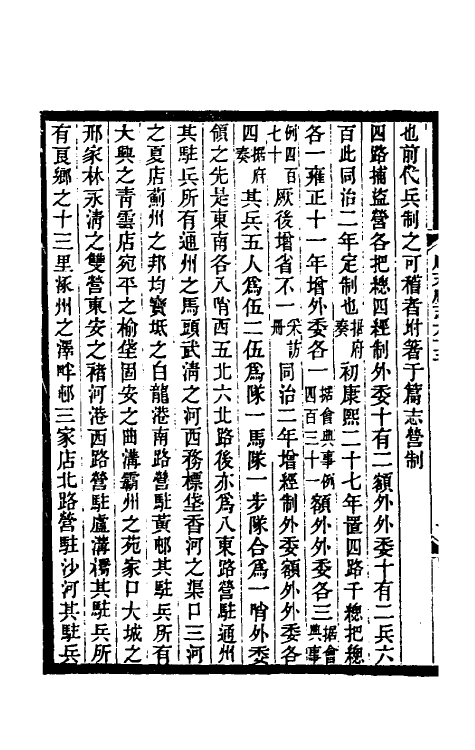 也前代兵制之可稽者附著于篇志營制
四路捕盜營各把總四經制外委十有二額外外委十有二兵六
百此同治二年定制也據府奏初康熙二十七年置四路千總把總
各一雍正十一年增外委各一據會典事例四百三十一額外外委各三據會典事
例四百七十厥後增省不一采訪冊同治二年增經制外委額外外委各
四據府奏其兵五人爲伍二伍爲隊一馬隊一步隊合爲一哨外委
領之先是東南各八哨西五北六北路後亦爲八東路營駐通州
其駐兵所有通州之馬頭武清之河西務標垡香河之渠口三河
之夏店薊州之邦均寶坻之白龍港南路營駐黃邨其駐兵所有
大興之靑雲店宛平之榆垡固安之曲溝霸州之苑家口大城之
邢家林永清之雙營東安之楮河港西路營駐盧溝橋其駐兵所
有良鄉之十三里涿州之澤畔邨三家店北路營駐沙河其駐兵